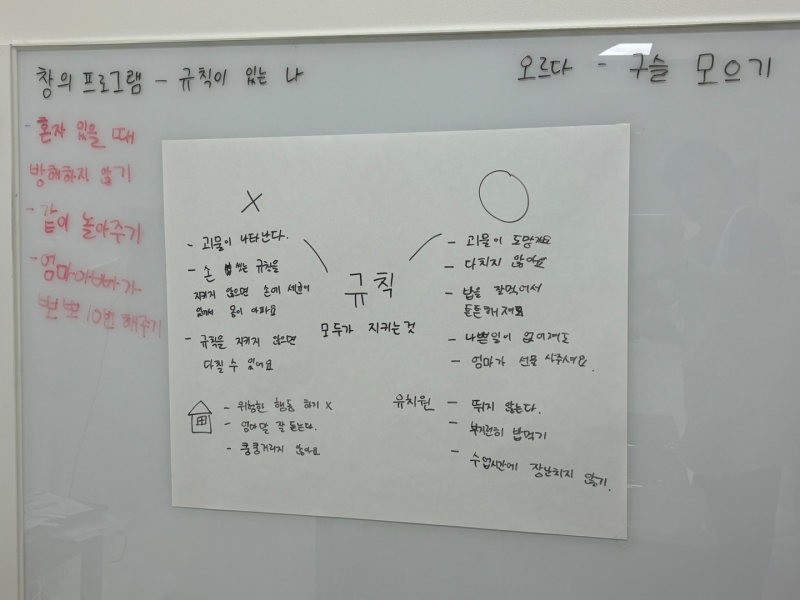 창의 프로그램 - 규칙이 있는 나
오르다 - 구슬 모으기
- 혼자 있을 때
방해하지 않기
- 같이 놀아주기
- 엄마아빠가
뽀뽀 10번 해주기
X
○
- 괴물이 나타난다.
- 손 씻는 규칙을
지키지 않으면 손에 세균이
있어서 몸이 아파요
- 규칙을 지키지 않으면
다칠 수 있어요
규칙
모두가 지키는 것
- 괴물이 도망가요
- 다치지 않아요
- 밥을 잘먹어서
튼튼해져요
- 나쁜일이 없어져요
- 엄마가 선물 사주세요.
- 위험한 행동 하기 X
- 엄마말 잘 듣는다.
- 쿵쿵거리지 않아요
유치원
- 뛰지 않는다.
- 부지런히 밥먹기
- 수업시간에 장난치지 않기.